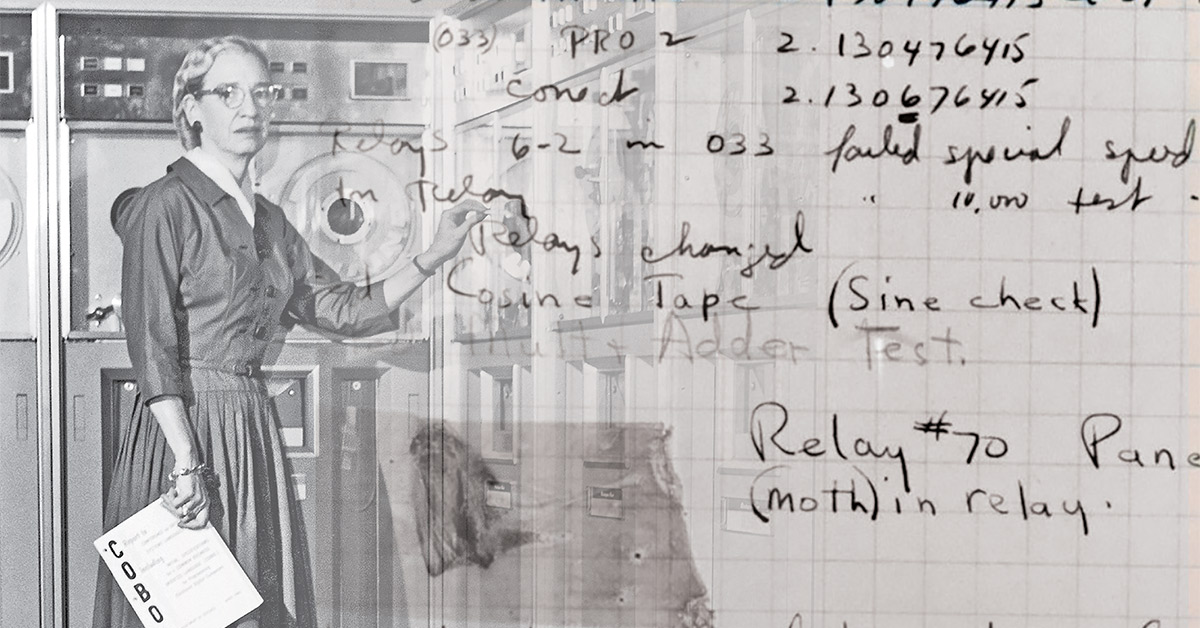 (033) PRO 2 2.130476415
conect 2.130676415
Relays 6-2 in 033 failed special speed
In Relay " 10,000 test .
Relays changed
Cosine Tape (Sine check)
Mult + Adder Test.
Relay #70 Pane
(moth) in relay.
COBO
Report to